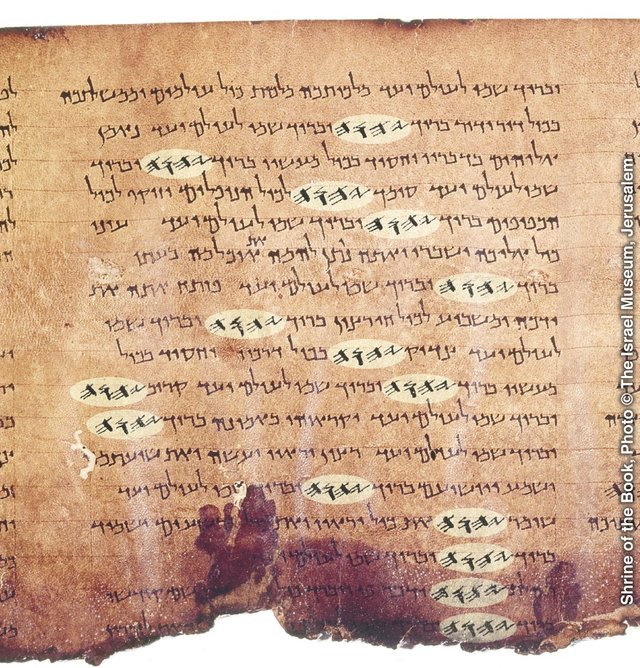 וברוך שמו לעולם ועד מלכותכה מלכות כול עולמים וממשלתכה
בכול דור ודור ברוך 𐤉𐤄𐤅𐤄 וברוך שמו לעולם ועד נאמן
אלוהים בדבריו וחסיד בכול מעשיו ברוך 𐤉𐤄𐤅𐤄 וברוך
שמו לעולם ועד סומך 𐤉𐤄𐤅𐤄 לכול הנופלים וזוקף לכול
הכפופים ברוך 𐤉𐤄𐤅𐤄 וברוך שמו לעולם ועד עיני
כול אליכה ישברו ואתה נותן להמה את אוכלמה בעתו
ברוך 𐤉𐤄𐤅𐤄 וברוך שמו לעולם ועד פותח אתה את
ידכה ומשביע לכול חי רצון ברוך 𐤉𐤄𐤅𐤄 וברוך שמו
לעולם ועד צדיק 𐤉𐤄𐤅𐤄 בכול דרכיו וחסיד בכול
מעשיו ברוך 𐤉𐤄𐤅𐤄 וברוך שמו לעולם ועד קרוב 𐤉𐤄𐤅𐤄
וברוך שמו לעולם ועד יקראוהו באמונה ברוך 𐤉𐤄𐤅𐤄
וברוך שמו לעולם ועד רצון יראיו יעשה ואת שועתמה
ישמע ויושיעם ברוך 𐤉𐤄𐤅𐤄 וברוך שמו לעולם ועד
שומר 𐤉𐤄𐤅𐤄 את כול יראיו ואת ישמיד
ברוך 𐤉𐤄𐤅𐤄 וברוך שמו לעולם ועד
תהלת 𐤉𐤄𐤅𐤄 שם קודשו
ברוך 𐤉𐤄𐤅𐤄
Shrine of the Book, Photo © The Israel Museum, Jerusalem